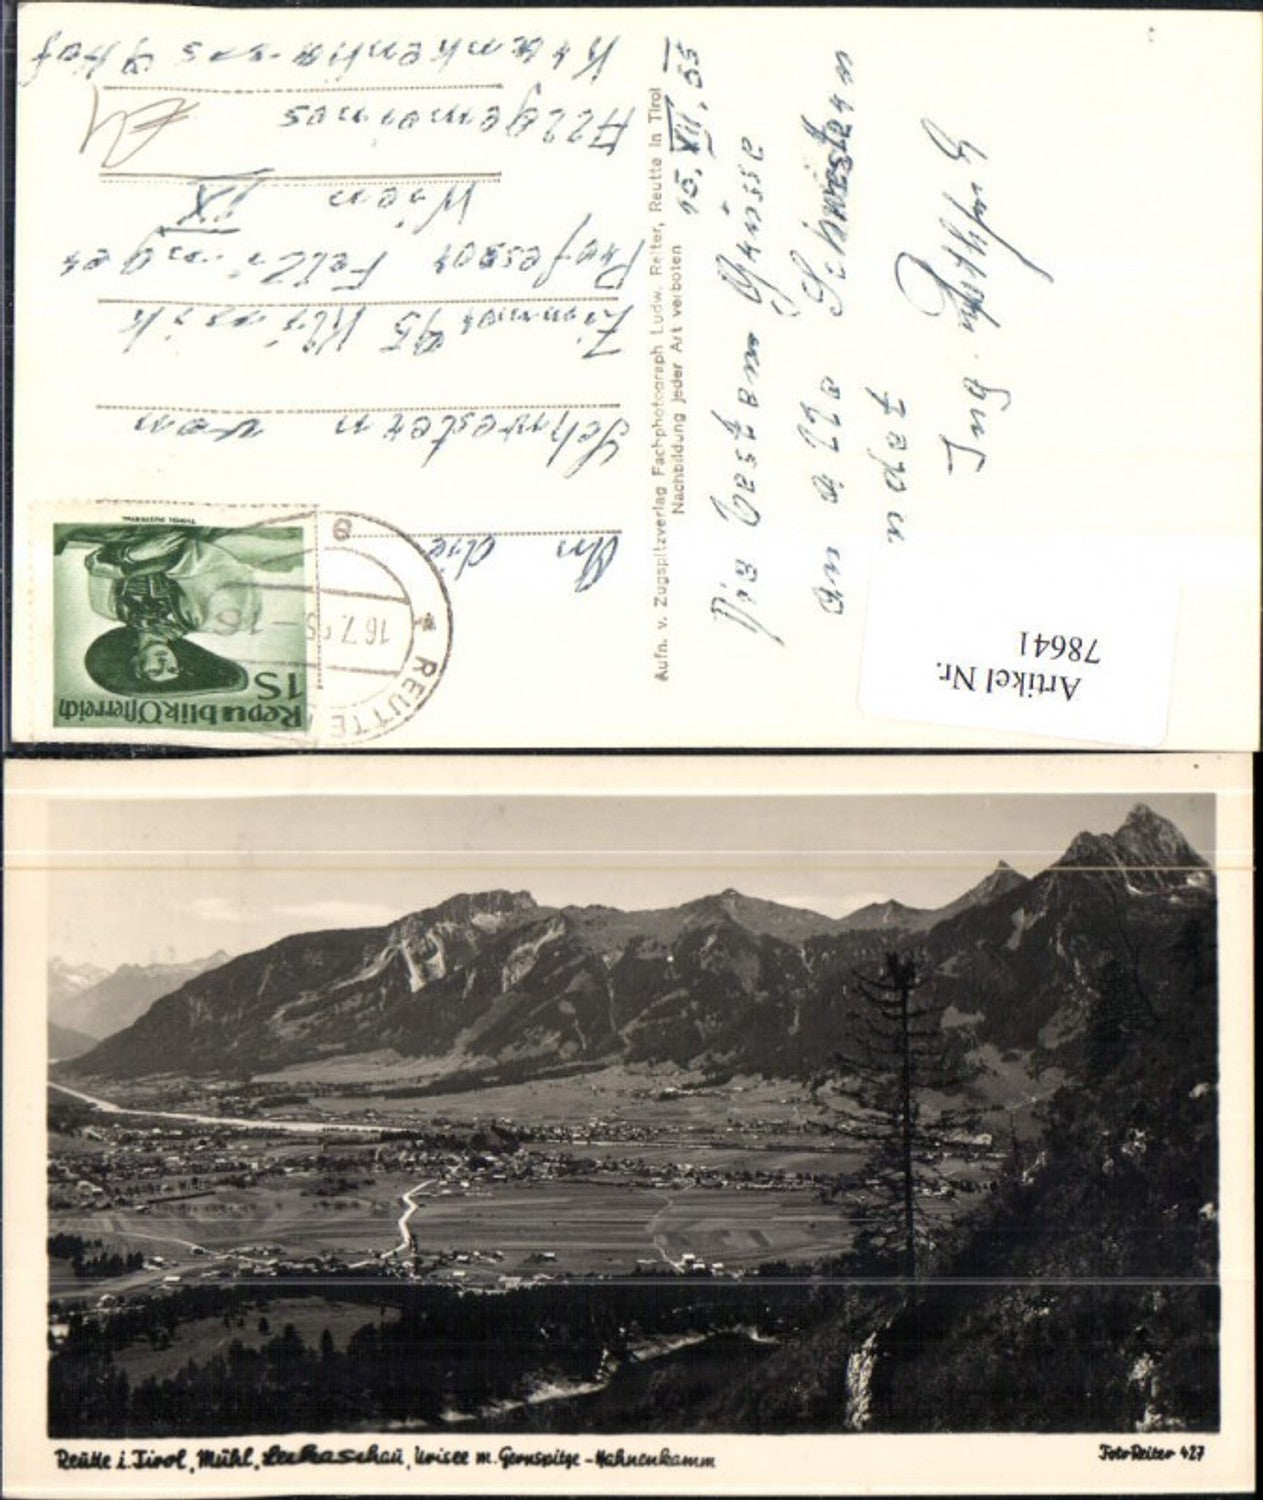 Krankenhaus 9 Hof
Allgemeines
Wien IX
Professor Fellinger
Zimmer 95 Klinik
Schwestern von
An die
Republik Österreich
1S
REUTTE
16.7.55-16
e
Aufn. v. Zugspitzverlag Fachphotograph Ludw. Reiter, Reutte in Tirol
Nachbildung jeder Art verboten
15. VII. 55
Die besten Grüsse
an alle Schwestern
u
Ing.
Artikel Nr.
78641
Reutte i. Tirol, Mühl, Lechaschau, Urisee m. Gernspitze - Hahnenkamm
Foto Reiter 427